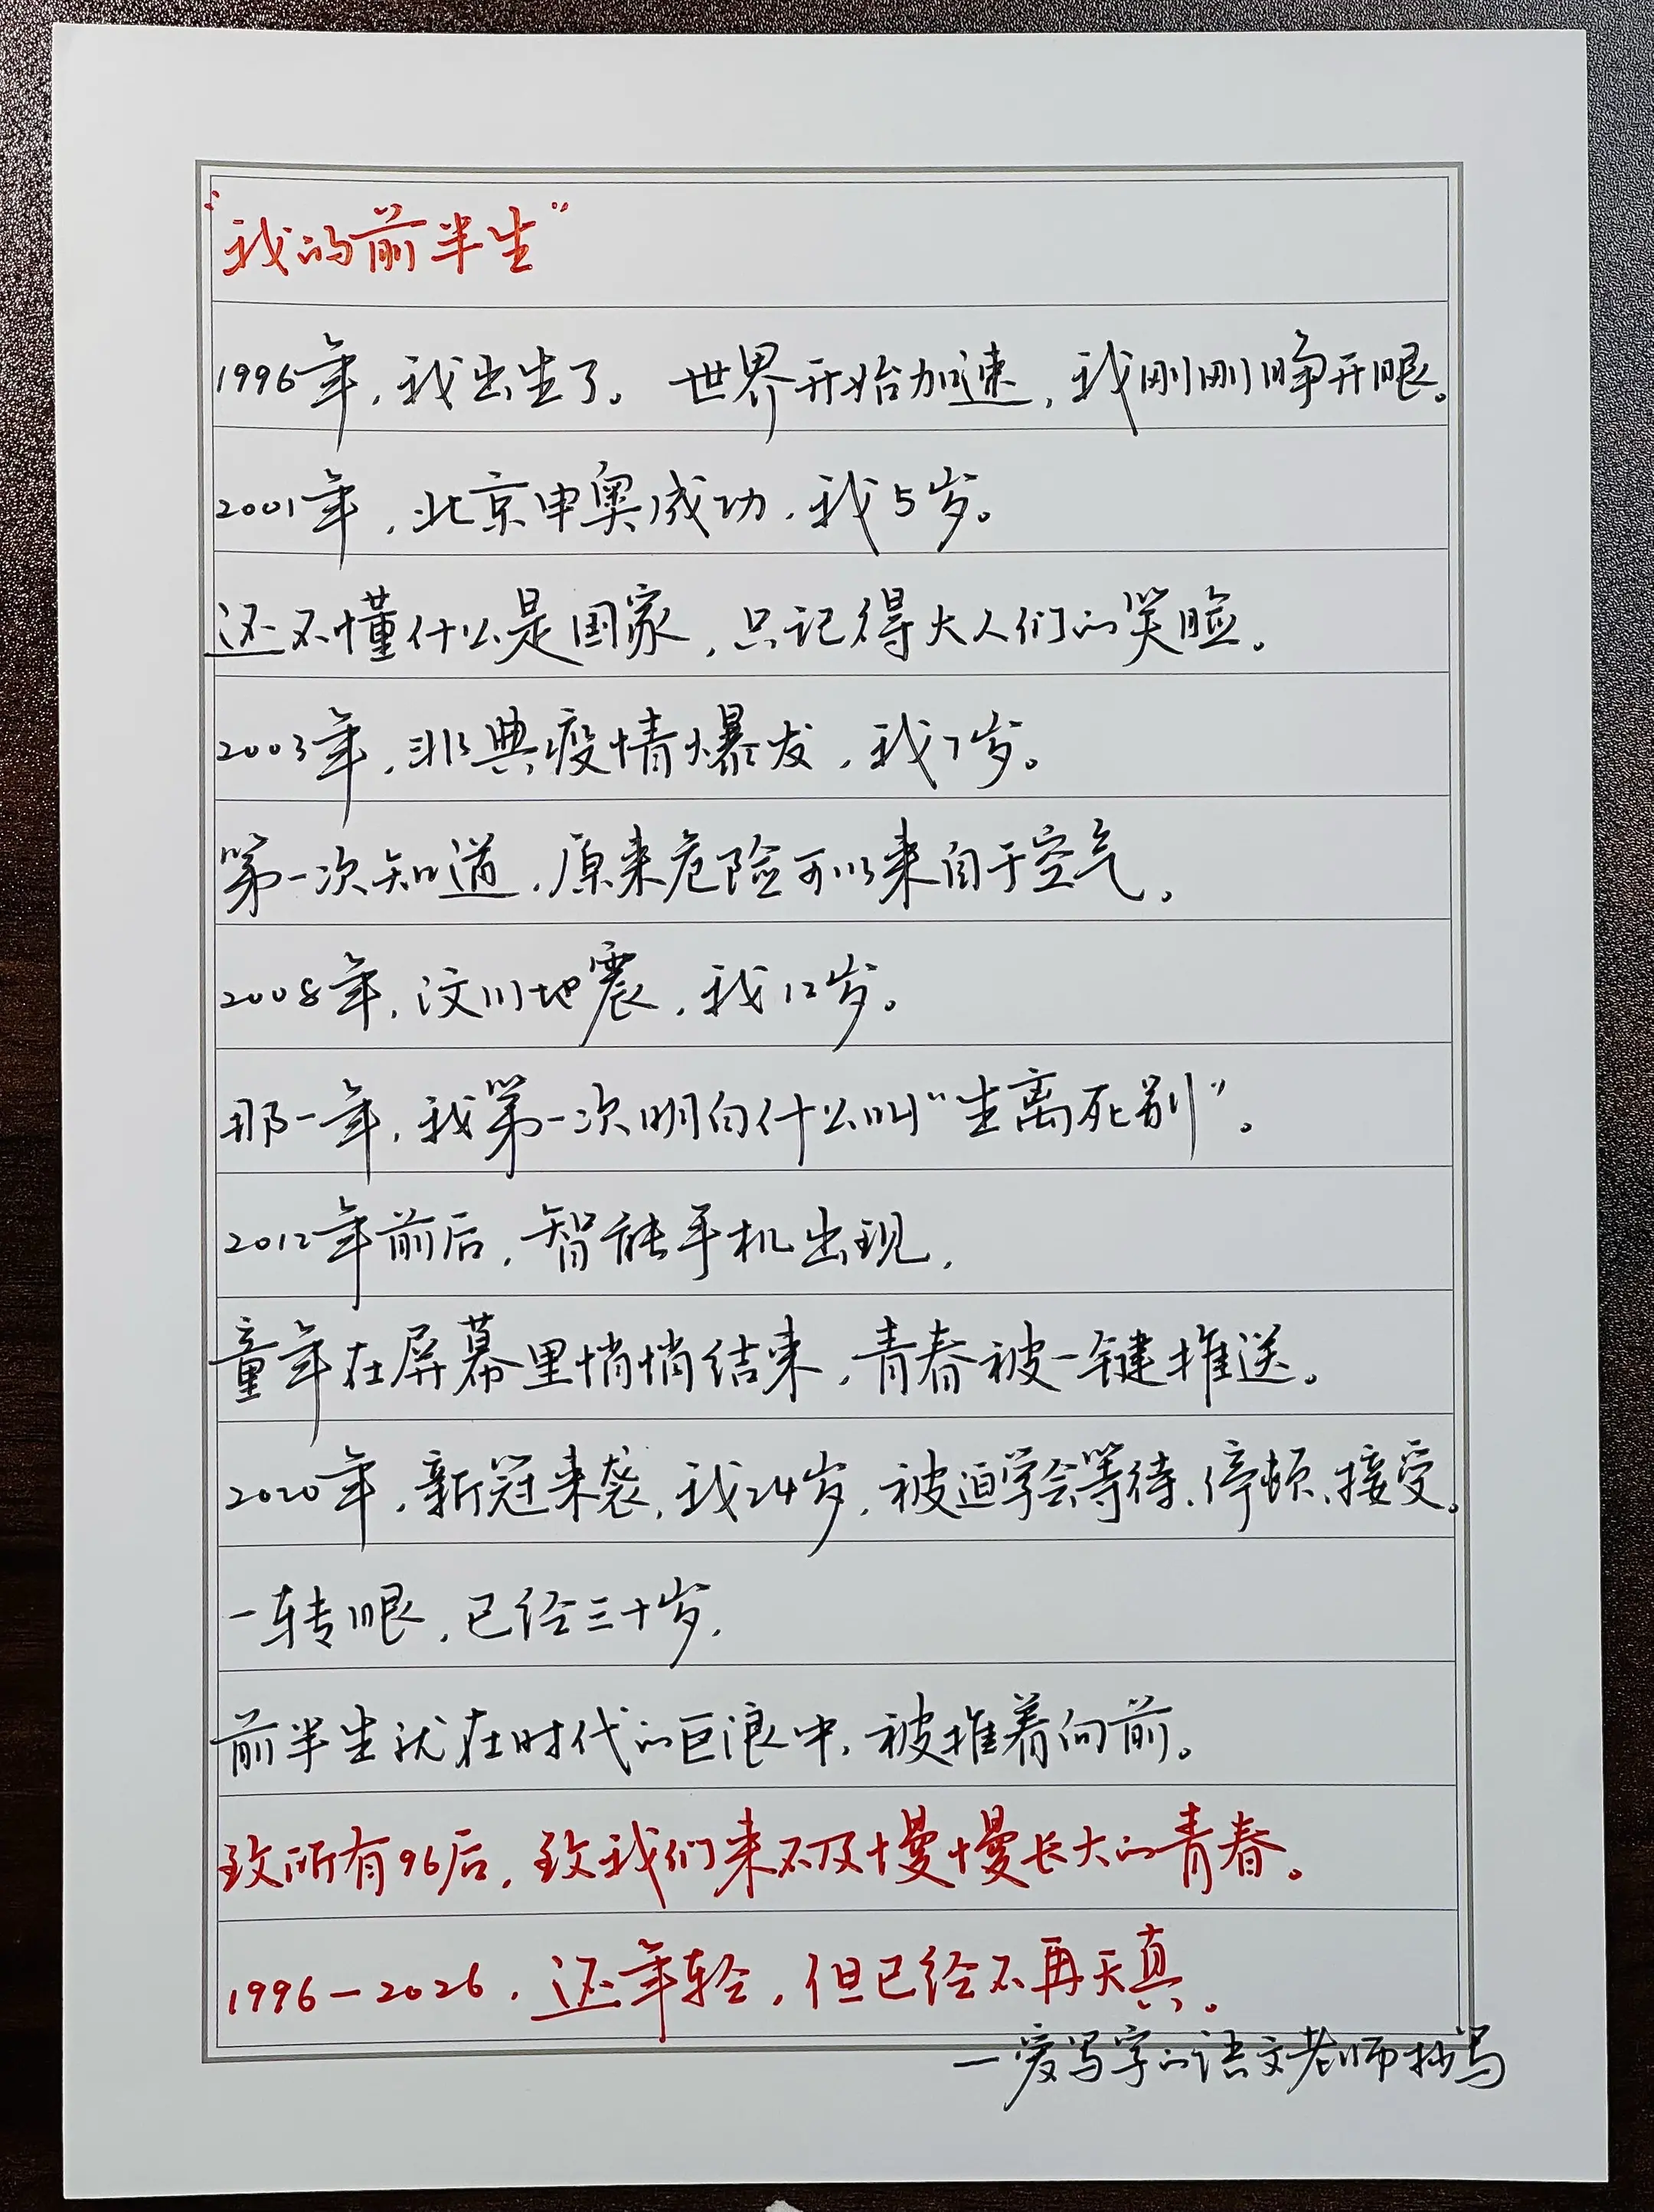 “我的前半生”
1996年，我出生了。世界开始加速，我刚刚睁开眼。
2001年，北京申奥成功，我5岁。
还不懂什么是国家，只记得大人们的笑脸。
2003年，非典疫情爆发，我7岁。
第一次知道，原来危险可以来自于空气。
2008年，汶川地震，我12岁。
那一年，我第一次明白什么叫“生离死别”。
2012年前后，智能手机出现，
童年在屏幕里悄悄结束，青春被一键推送。
2020年，新冠来袭，我24岁，被迫学会等待、停顿、接受。
一转眼，已经三十岁，
前半生就在时代的巨浪中，被推着向前。
致所有96后，致我们来不及慢慢长大的青春。
1996—2026，还年轻，但已经不再天真。
—爱写字的语文老师抄写